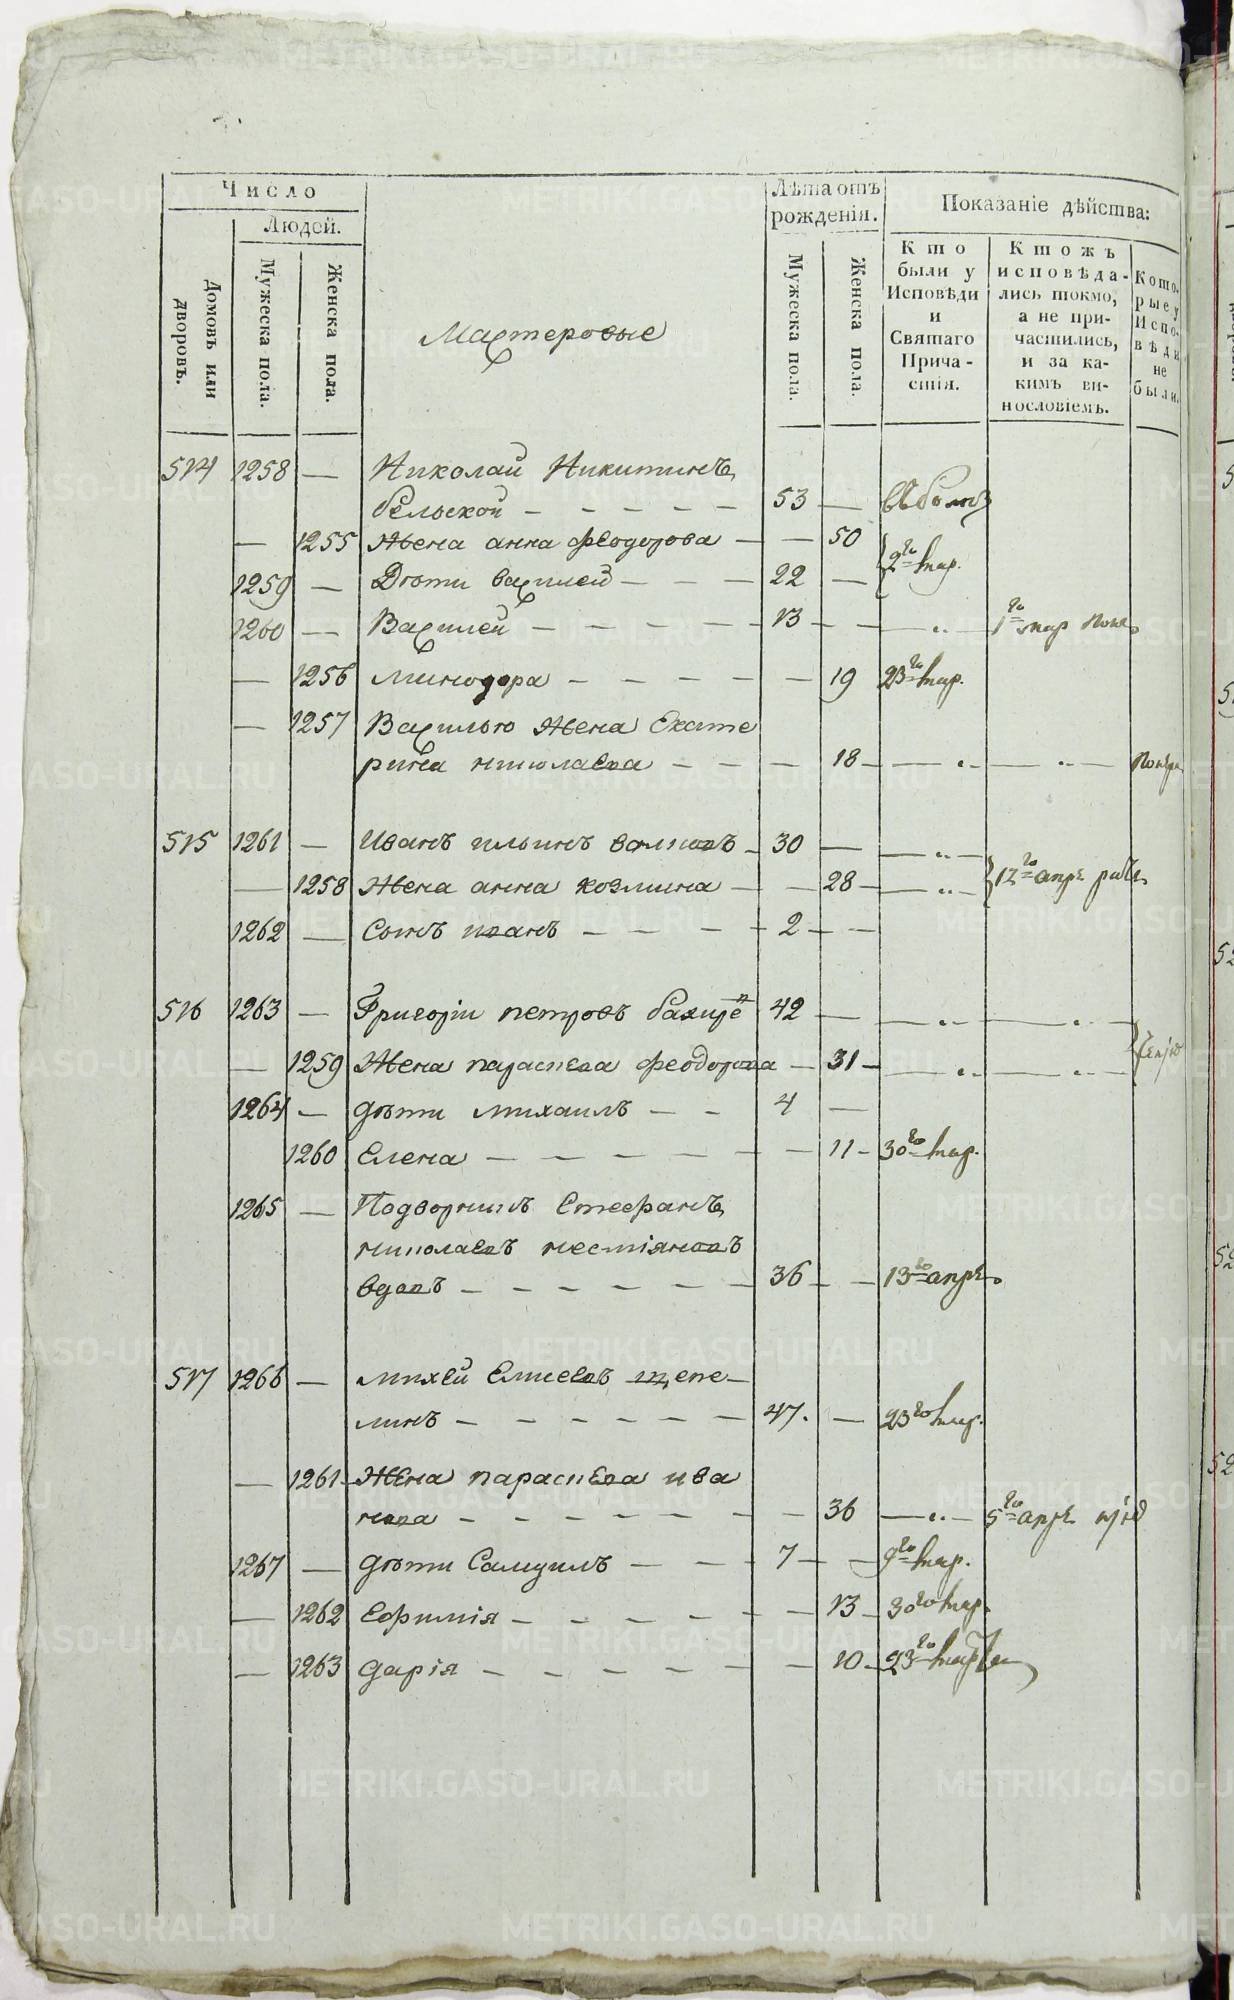 Число
Людей.
Домовъ или дворовъ.
Мужеска пола.
Женска пола.
Мастеровые
Лѣта отъ рожденія.
Мужеска пола.
Женска пола.
Показаніе дѣйства:
Кто были у Исповѣди и Святаго Причастія.
Ктожъ исповѣдались токмо, а не причастились, и за какимъ винословіемъ.
Которые у Исповѣди не были.
514 1258 — Николай Никитинъ
бѣльской — — — — — 53 —
— 1255 Жена анна феодорова — — 50
1259 — Дѣти василей — — — 22 — 2го мар.
1260 — Василей — — — — — 13 — — „ — 1го мар
— 1256 Минодора — — — — — — 19 23го мар.
— 1257 Василью жена Екате
рина николаева — — — — 18 — — „ — — „ —
515 1261 — Иванъ ильинъ — 30 — — „ —
— 1258 Жена анна козмина — — 28 — — „ — 12го апрѣ
1262 — Сынъ иванъ — — — — 2 — —
516 1263 — Григорій петровъ 42 — — „ — — „ —
— 1259 Жена параскева феодорова — 31 — — „ — — „ —
1264 — дѣти михаилъ — — 4 —
1260 Елена — — — — — — 11 — 30го мар.
1265 — Подворникъ Стефанъ
николаевъ нестіяновъ
вдовъ — — — — — — 36 — — 13го апрѣ
517 1266 — михей Елисеевъ щепе-
линъ — — — — — — 47. — 23го мар.
— 1261 Жена параскева ива
нова — — — — — — — 36 — „ — 5го апрѣ
1267 — дѣти Самуилъ — — — 7 — — 9го мар.
— 1262 Ефимія — — — — — — 13 — 30го мар.
— 1263 дарія — — — — — — 10 — 23го мар
METRIKI.GASO-URAL.RU